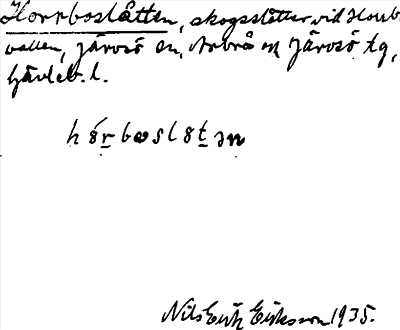 Horrboslåtten, skogsslåtter vid Horrb-
vallen, Järvsö sn, Arbrå och Järvsö tg,
Gävleb. l.
hórboslätən
Nils Erik Eriksson 1935.